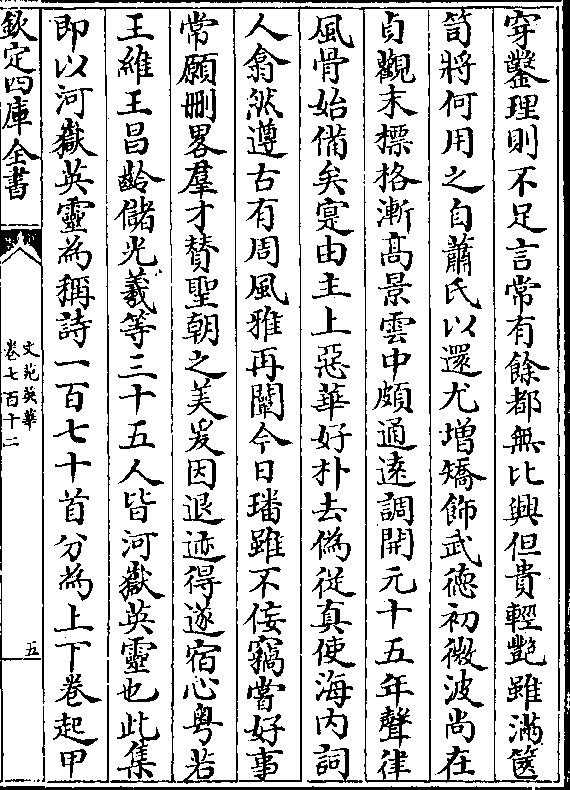 穿鑿理則不足言常有餘都無比興但貴輕艷雖滿篋
笥將何用之自蕭氏以還尤增矯飾武德初微波尚在
貞觀末標格漸高景雲中頗通遠調開元十五年聲律
風骨始備矣寔由主上惡華好朴去偽從真使海內詞
人翕然遵古有周風雅再闡今日璠雖不佞竊嘗好事
常願刪畧羣才贊聖朝之美爰因退迹得遂宿心粤若
王維王昌齡儲光羲等三十五人皆河嶽英靈也此集
即以河嶽英靈為稱詩一百七十首分為上下卷起甲
欽定四庫全書
文苑英華
卷七百十二
五